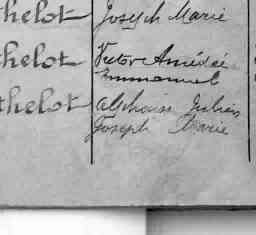 thelot Joseph Marie
thelot Victor Amédée
Emmanuel
thelot Alphonse Julien
Joseph Marie